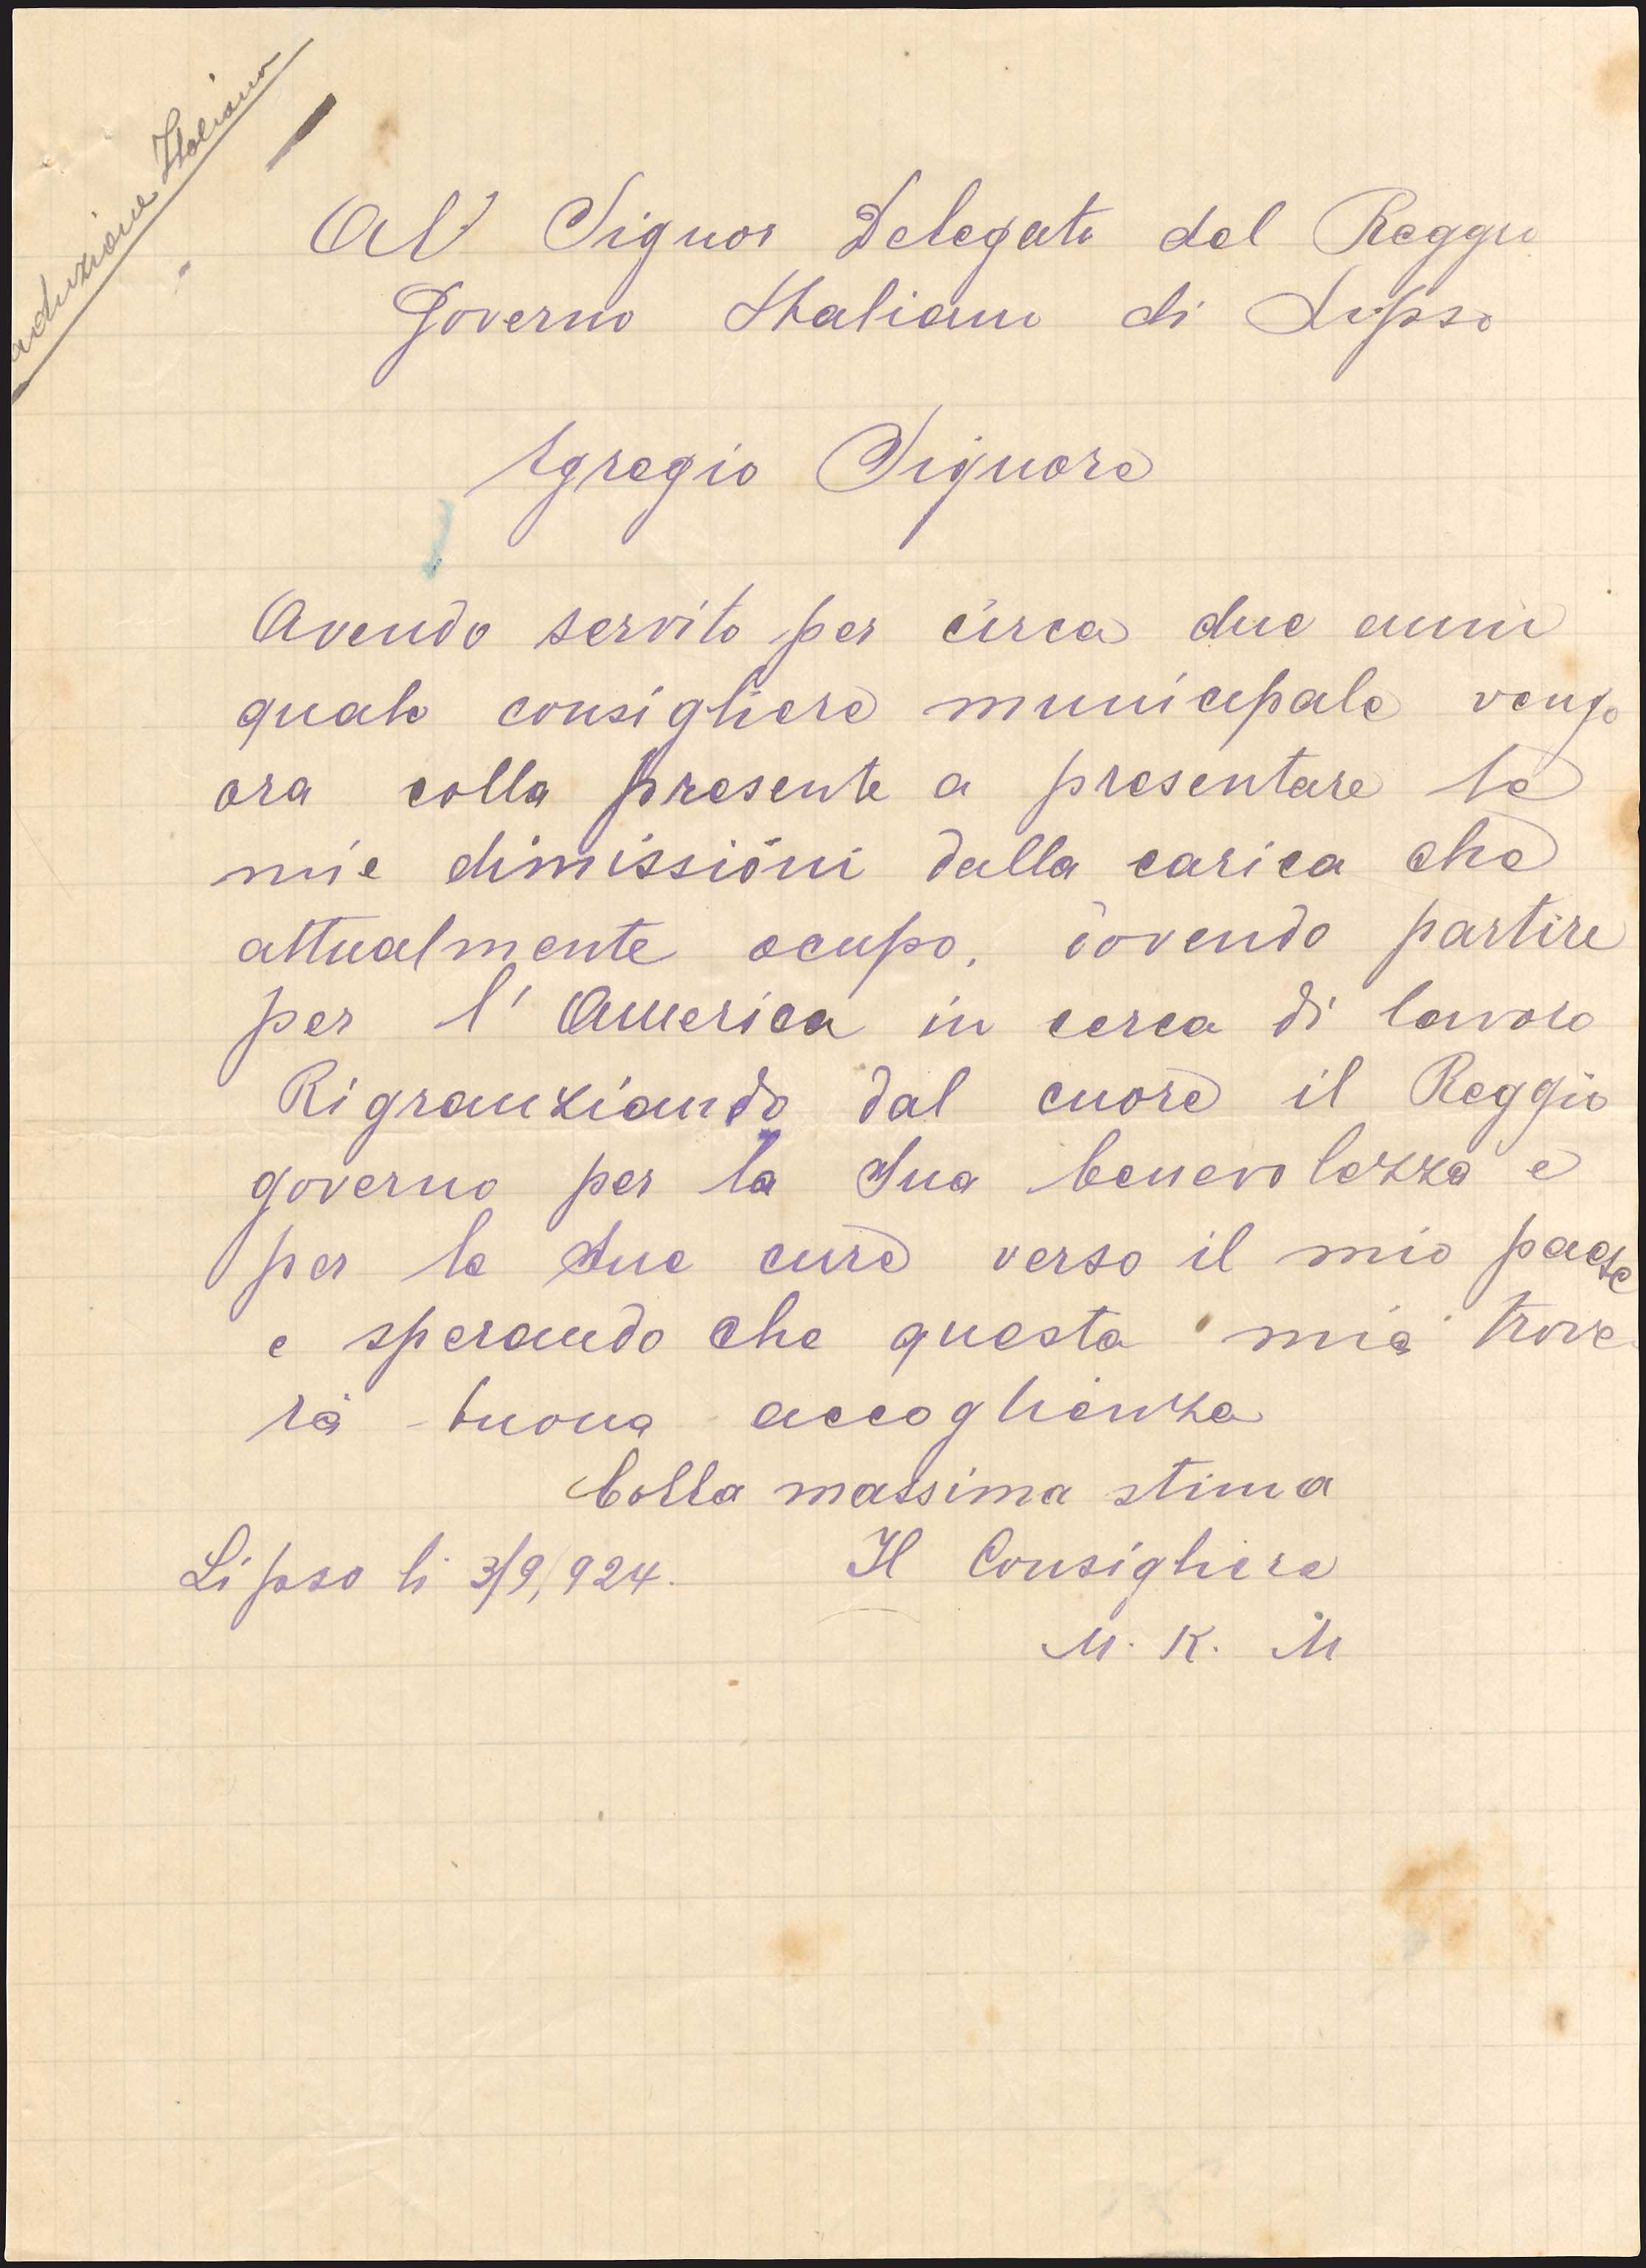 aduzione Italiano
Al Signor Delegato del Reggio
Governo Italiano di Lipso
Egregio Signore
Avendo servito per circa due anni
quale consigliere municipale vengo
ora colla presente a presentare le
mie dimissioni dalla carica che
attualmente ocupo, dovendo partire
per l' America in cerca di lavoro
Rigranziando dal cuore il Reggio
governo per la Sua benevolezza e
per le Sue cure verso il mio paese
e sperando che questa mia trove
rà buona accoglienza
Colla massima stima
Lipso li 3/9,924. Il Consigliere
M. K. M